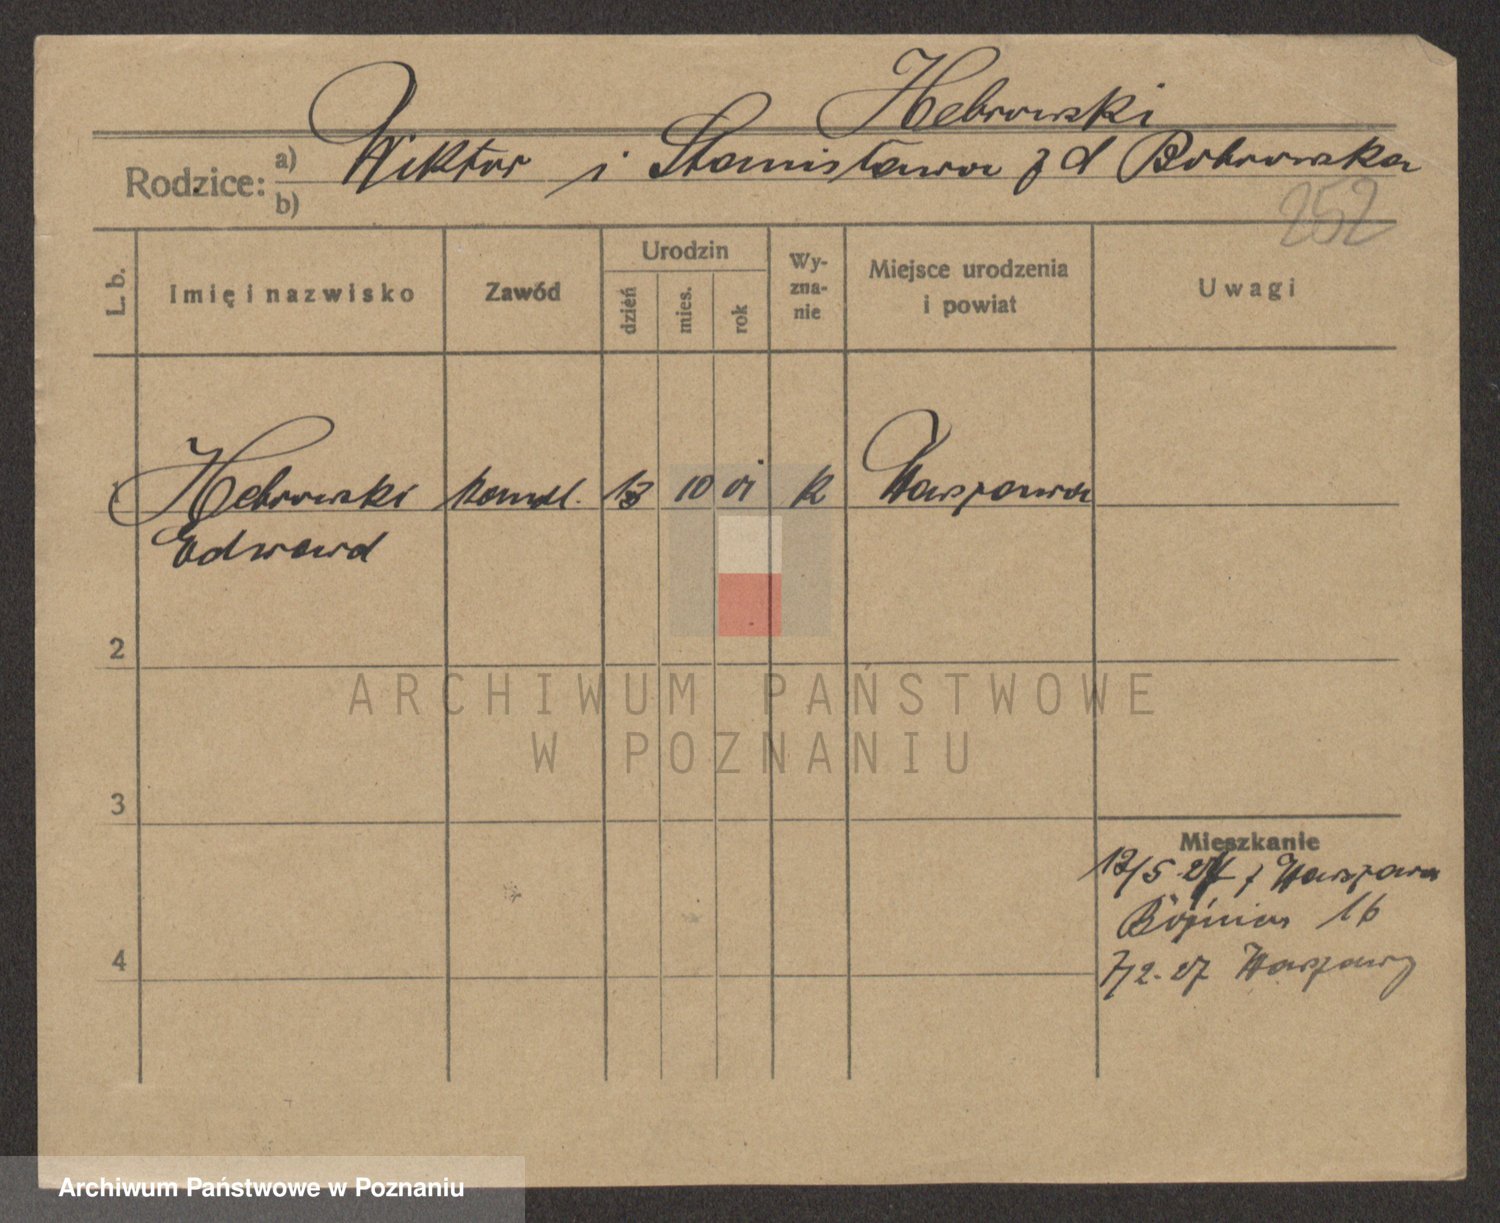 Hebrowski
Rodzice: a) Wiktor i Stanisława z d Bobrowska
b)
252
L. b.
Imię i nazwisko
Zawód
Urodzin
dzień
mies.
rok
Wy-
zna-
nie
Miejsce urodzenia
i powiat
Uwagi
1 Hebrowski handl. 13 10 01 k Warszawa
Edward
2
ARCHIWUM PAŃSTWOWE
W POZNANIU
3
Mieszkanie
12/5-27 z Warszawa
16
4
7/2-27 Warszawy
Archiwum Państwowe w Poznaniu